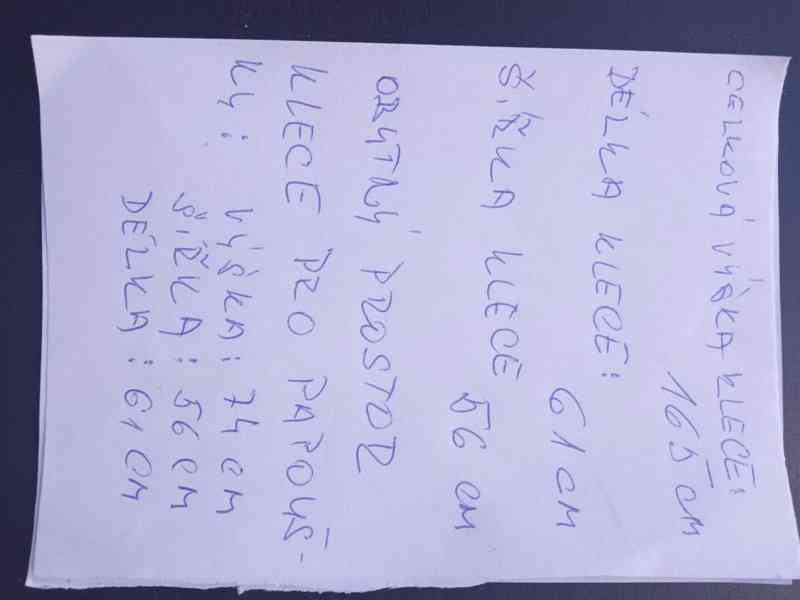 CELKOVÁ VÝŠKA KLECE:
165 cm
DÉLKA KLECE:
61 cm
ŠÍŘKA KLECE
56 cm
OBYTNÝ PROSTOR
KLECE PRO PAPOUŠ-
KY: VÝŠKA: 74 cm
ŠÍŘKA: 56 cm
DÉLKA: 61 cm